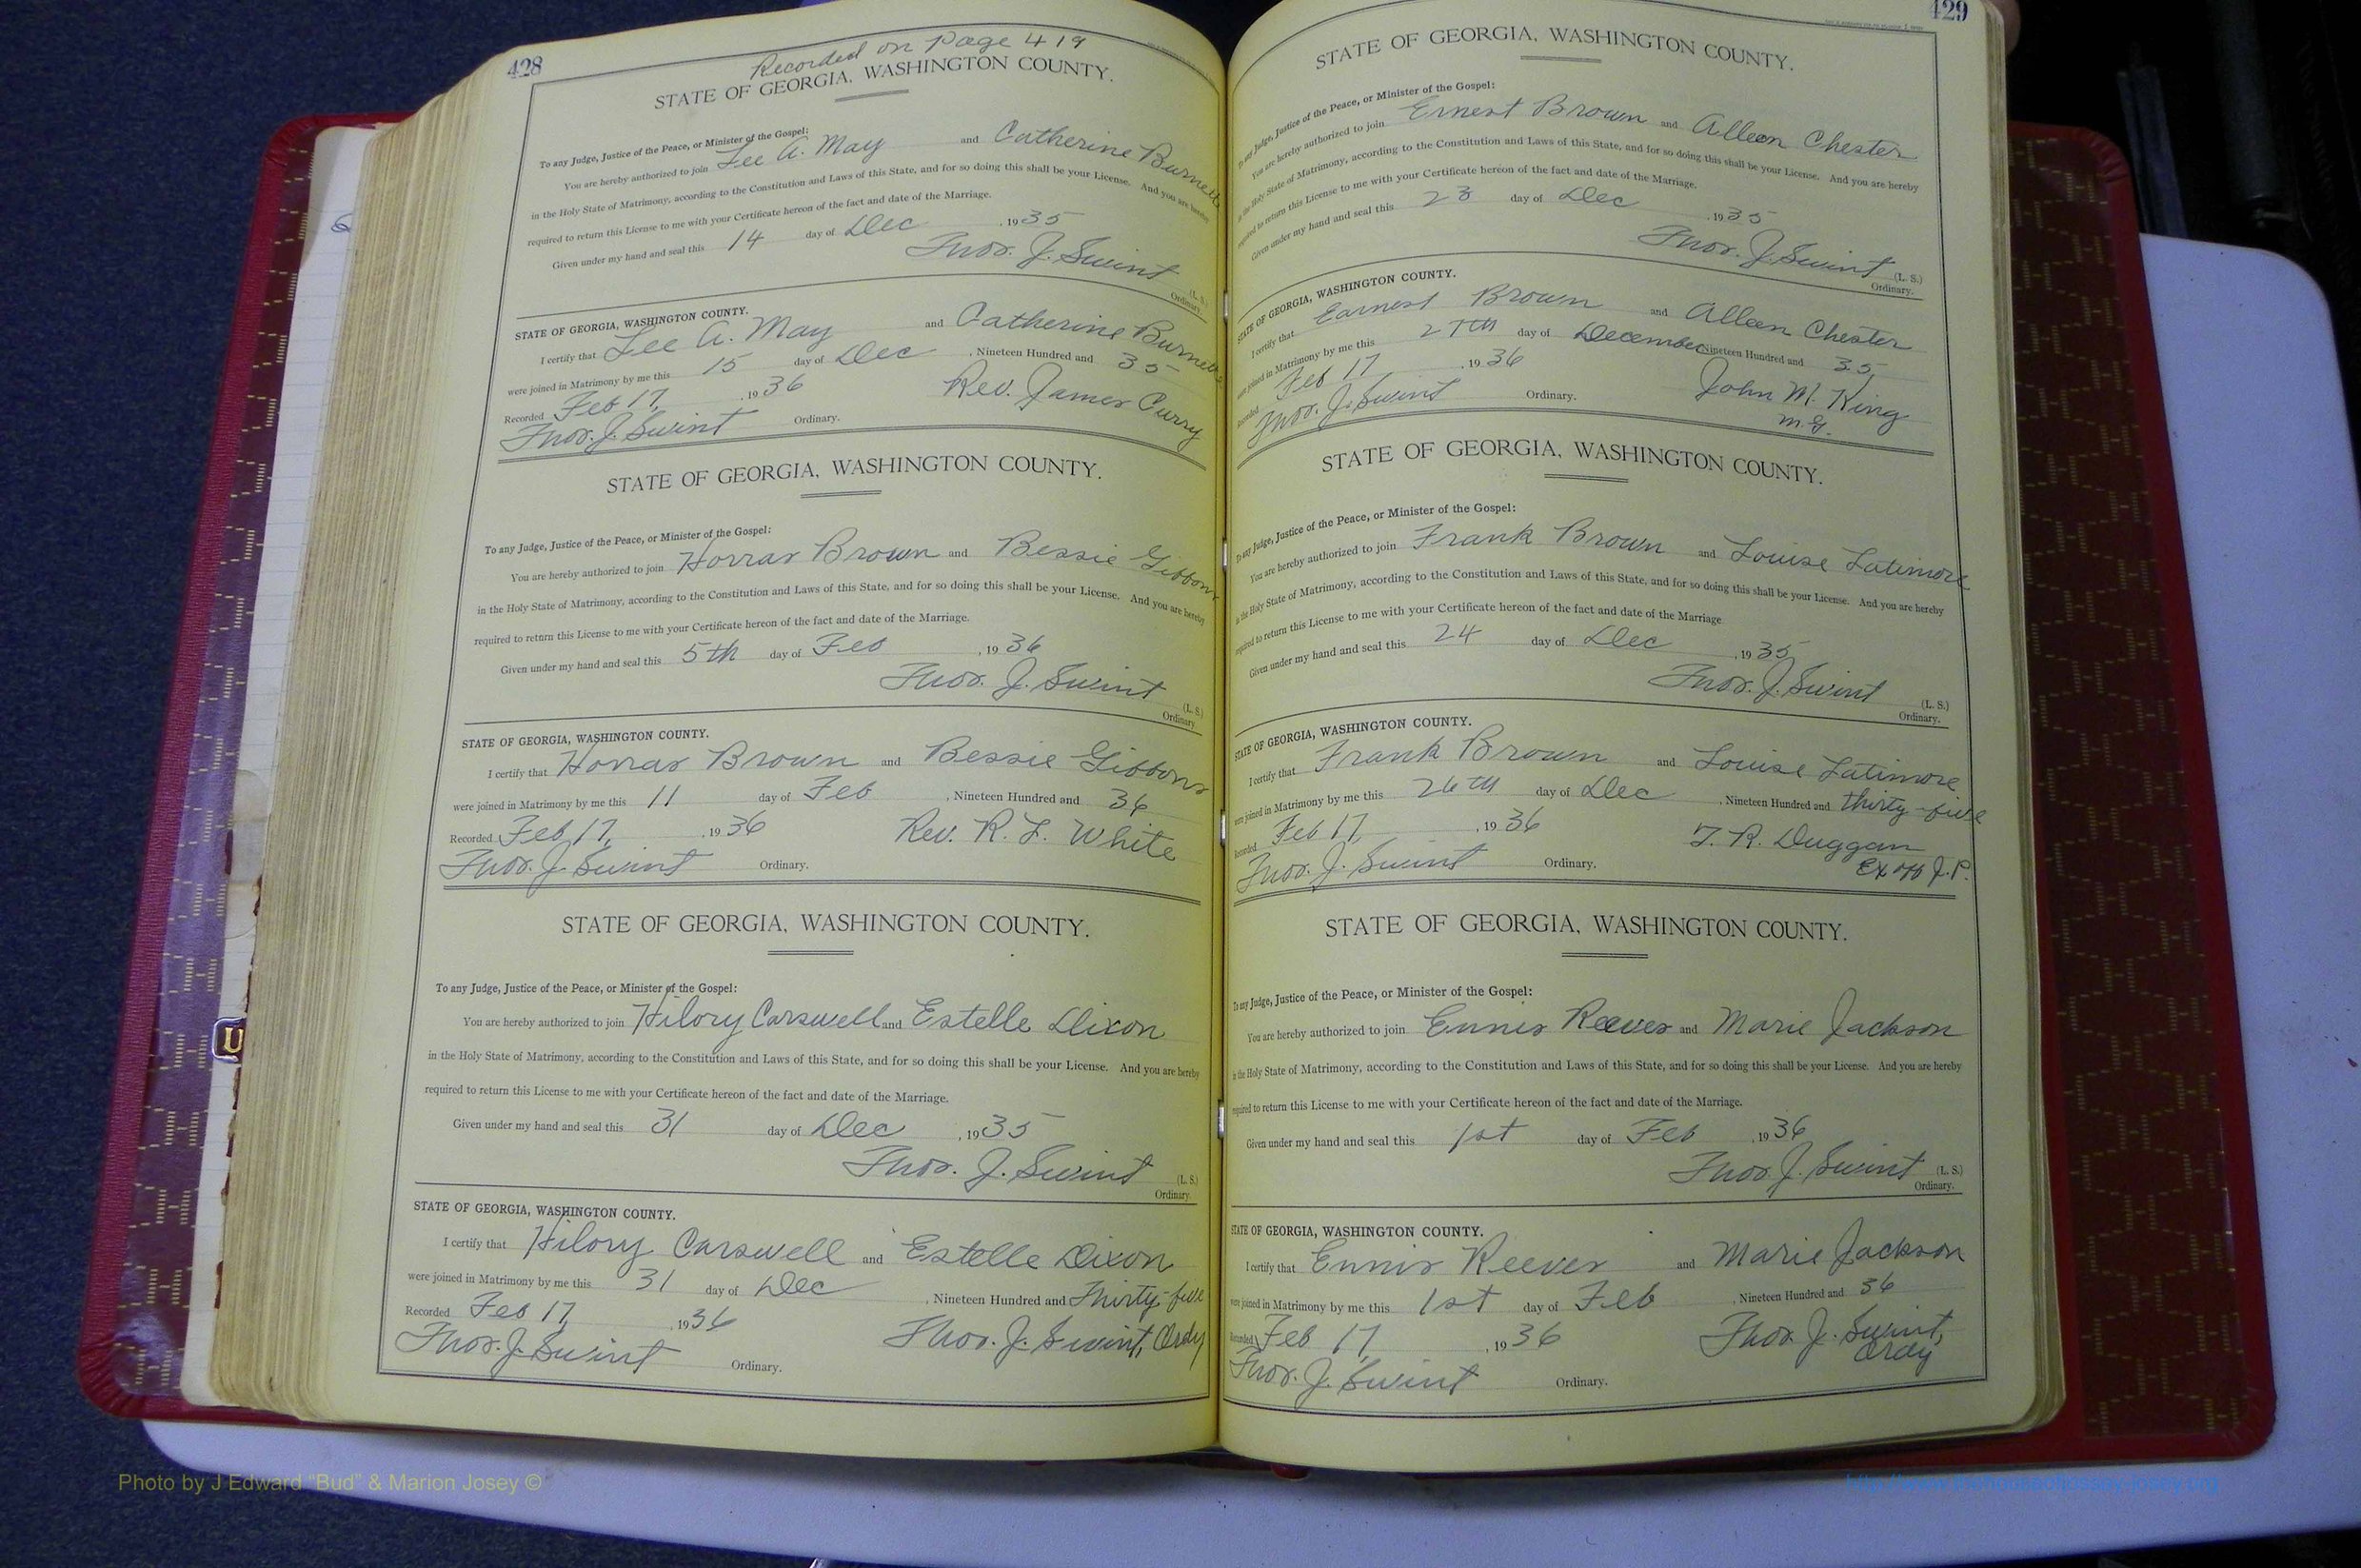 428
Recorded on Page 419
STATE OF GEORGIA, WASHINGTON COUNTY.
To any Judge, Justice of the Peace, or Minister of the Gospel:
You are hereby authorized to join Lee A. May and Catherine Burnett
in the Holy State of Matrimony, according to the Constitution and Laws of this State, and for so doing this shall be your License. And you are hereby
required to return this License to me with your Certificate hereon of the fact and date of the Marriage.
Given under my hand and seal this 14 day of Dec , 1935
Thos. J. Swint (L. S.)
Ordinary.
STATE OF GEORGIA, WASHINGTON COUNTY.
I certify that Lee A. May and Catherine Burnett
were joined in Matrimony by me this 15 day of Dec , Nineteen Hundred and 35
Recorded Feb 17, , 1936 Rev. James Curry
Thos. J. Swint Ordinary.
STATE OF GEORGIA, WASHINGTON COUNTY.
To any Judge, Justice of the Peace, or Minister of the Gospel:
You are hereby authorized to join Horras Brown and Bessie Gibbons
in the Holy State of Matrimony, according to the Constitution and Laws of this State, and for so doing this shall be your License. And you are hereby
required to return this License to me with your Certificate hereon of the fact and date of the Marriage.
Given under my hand and seal this 5th day of Feb , 1936
Thos. J. Swint (L. S.)
Ordinary.
STATE OF GEORGIA, WASHINGTON COUNTY.
I certify that Horras Brown and Bessie Gibbons
were joined in Matrimony by me this 11 day of Feb , Nineteen Hundred and 36
Recorded Feb 17, , 1936 Rev. R. L. White
Thos. J. Swint Ordinary.
STATE OF GEORGIA, WASHINGTON COUNTY.
To any Judge, Justice of the Peace, or Minister of the Gospel:
You are hereby authorized to join Hilory Carswell and Estelle Dixon
in the Holy State of Matrimony, according to the Constitution and Laws of this State, and for so doing this shall be your License. And you are hereby
required to return this License to me with your Certificate hereon of the fact and date of the Marriage.
Given under my hand and seal this 31 day of Dec , 1935
Thos. J. Swint (L. S.)
Ordinary.
STATE OF GEORGIA, WASHINGTON COUNTY.
I certify that Hilory Carswell and Estelle Dixon
were joined in Matrimony by me this 31 day of Dec , Nineteen Hundred and Thirty-five
Recorded Feb 17, , 1936 Thos. J. Swint, Ordy
Thos. J. Swint Ordinary.
429
STATE OF GEORGIA, WASHINGTON COUNTY.
To any Judge, Justice of the Peace, or Minister of the Gospel:
You are hereby authorized to join Ernest Brown and Alleen Chester
in the Holy State of Matrimony, according to the Constitution and Laws of this State, and for so doing this shall be your License. And you are hereby
required to return this License to me with your Certificate hereon of the fact and date of the Marriage.
Given under my hand and seal this 23 day of Dec , 1935
Thos. J. Swint (L. S.)
Ordinary.
STATE OF GEORGIA, WASHINGTON COUNTY.
I certify that Earnest Brown and Alleen Chester
were joined in Matrimony by me this 27th day of December Nineteen Hundred and 35,
Recorded Feb 17 , 1936 John M. King
Thos. J. Swint Ordinary. M.G.
STATE OF GEORGIA, WASHINGTON COUNTY.
To any Judge, Justice of the Peace, or Minister of the Gospel:
You are hereby authorized to join Frank Brown and Louise Latimore
in the Holy State of Matrimony, according to the Constitution and Laws of this State, and for so doing this shall be your License. And you are hereby
required to return this License to me with your Certificate hereon of the fact and date of the Marriage
Given under my hand and seal this 24 day of Dec , 1935
Thos. J. Swint (L. S.)
Ordinary.
STATE OF GEORGIA, WASHINGTON COUNTY.
I certify that Frank Brown and Louise Latimore
were joined in Matrimony by me this 26th day of Dec , Nineteen Hundred and thirty-five
Recorded Feb 17, , 1936 T. R. Duggan
Thos. J. Swint Ordinary. Ex off J.P.
STATE OF GEORGIA, WASHINGTON COUNTY.
To any Judge, Justice of the Peace, or Minister of the Gospel:
You are hereby authorized to join Ennis Reeves and Marie Jackson
in the Holy State of Matrimony, according to the Constitution and Laws of this State, and for so doing this shall be your License. And you are hereby
required to return this License to me with your Certificate hereon of the fact and date of the Marriage.
Given under my hand and seal this 1st day of Feb , 1936
Thos. J. Swint (L. S.)
Ordinary.
STATE OF GEORGIA, WASHINGTON COUNTY.
I certify that Ennis Reeves and Marie Jackson
were joined in Matrimony by me this 1st day of Feb , Nineteen Hundred and 36
Recorded Feb 17, , 1936 Thos. J. Swint,
Ordy
Thos. J. Swint Ordinary.
U
Photo by J Edward "Bud" & Marion Josey ©